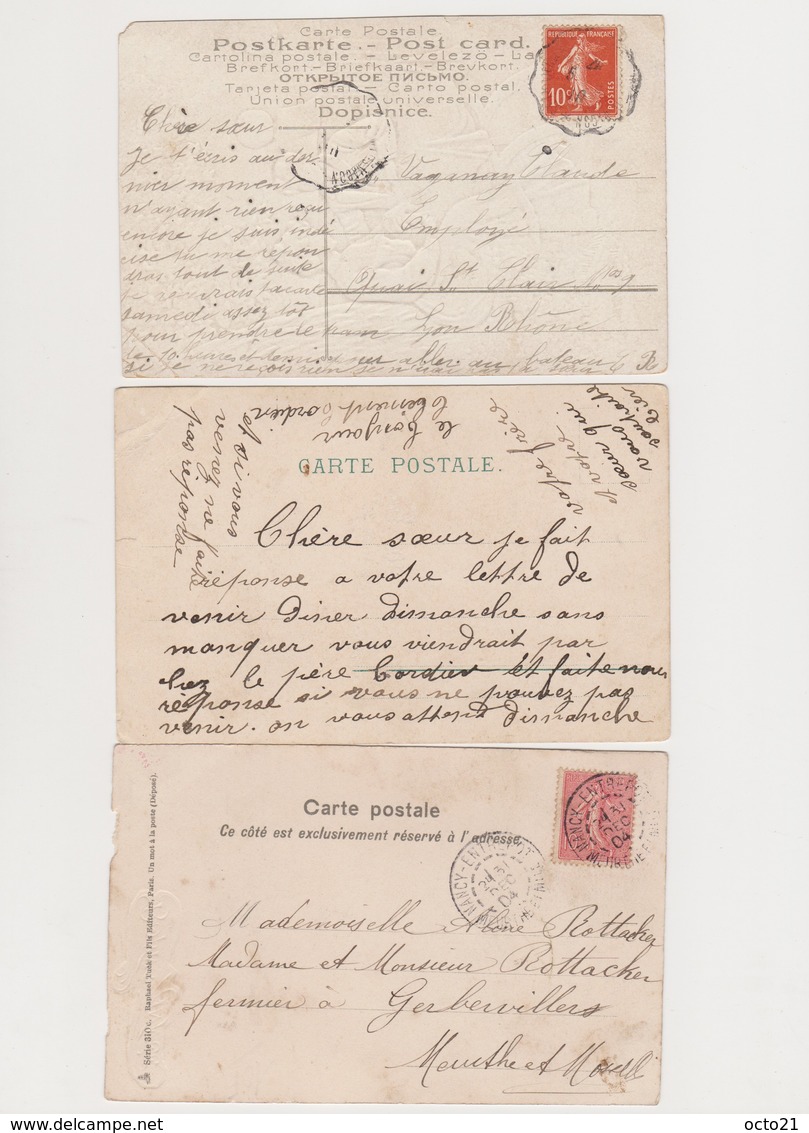 Carte Postale.
Postkarte. - Post card.
Cartolina postale. - Levelező-La
Brefkort.-Briefkaart.-Brevkort.
ОТКРЫТОЕ ПИСЬМО.
Tarjeta postal. - Carto postal.
Union postale universelle.
Dopisnice.
REPUBLIQUE FRANÇAISE
10c POSTES
Chère sœur
Je t'écris au der
nier moment
n'ayant rien reçu
encore je suis indé
cise tu me répon
dras tout de suite
samedi assez tôt
pour prendre le tram
si je ne reçois rien
Vaganay Claude
Employé
Quai St Clair No 9
Lyon Rhône
CARTE POSTALE.
Chère sœur je fait
réponse a votre lettre de
venir diner dimanche sans
manquer vous viendrait par
chez le père Cordier et faite nous
réponse si vous ne pouvez pas
venir. on vous attend dimanche
et si vous
venez ne faite
pas réponse
le bonjour
Clement Cordier
votre frère
et votre
sœur qui
vous
souhaite
Carte postale
Ce côté est exclusivement réservé à l'adresse.
NANCY-ENTREPOT
31
DEC
04
NANCY-ENTREPOT
31
DEC
04
Mademoiselle Rottacker
Madame et Monsieur Rottacker
fermier à Gerbervillers
Meurthe et Moselle
Série 310 c. Raphael Tuck et Fils Editeurs, Paris. Un mot à la poste (Déposé).
octo21